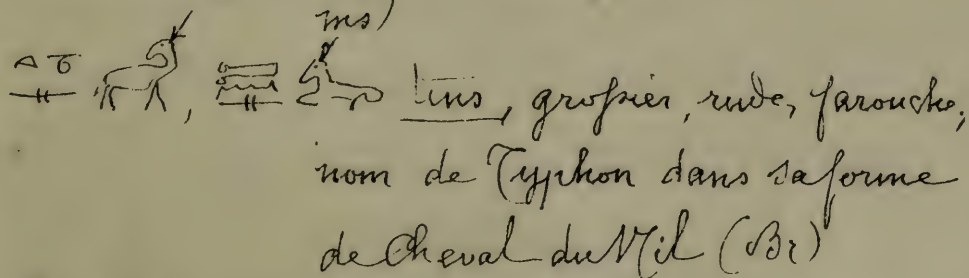 ms)
tms, grossier, rude, farouche,
nom de Typhon dans sa forme
de Cheval du Nil (Br)